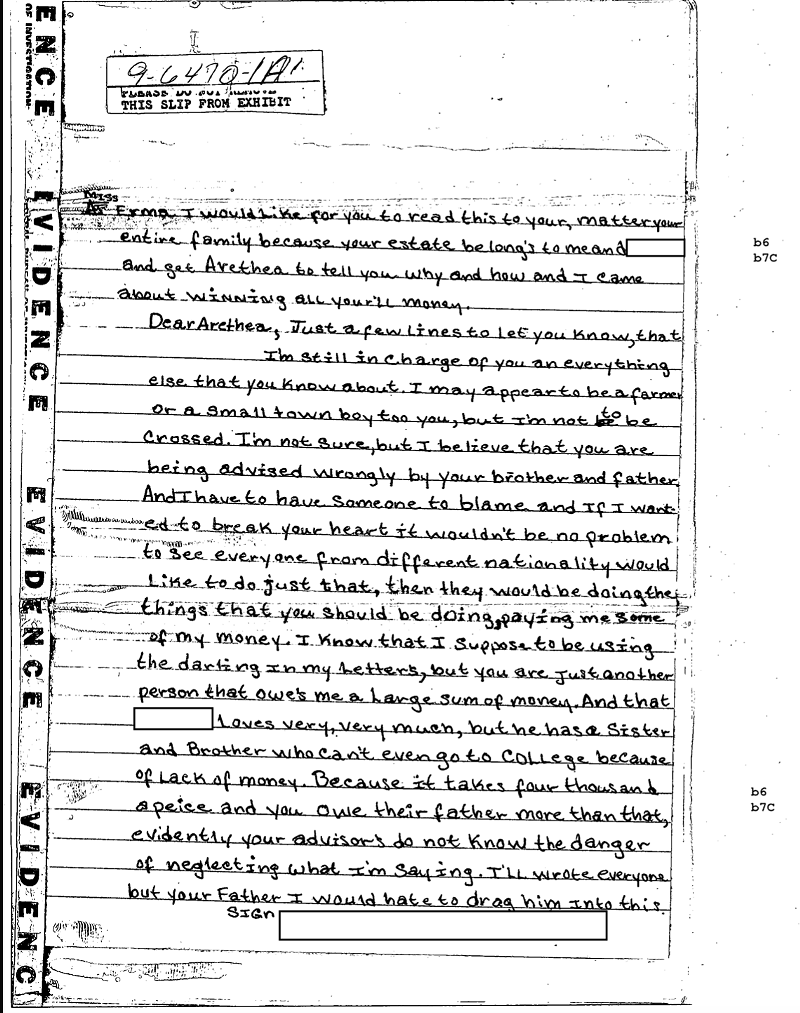 EVIDENCE EVIDENCE EVIDENCE EVIDENC
OF INVESTIGATION
9-6470-1A1
PLEASE DO NOT REMOVE
THIS SLIP FROM EXHIBIT
Miss
Erma I would Like for you to read this to your, matter your
entire family because your estate belong's to me and
b6
b7C
and get Arethea to tell you why and how and I came
about winning all your'll money.
Dear Arethea, Just a few lines to let you know, that
I'm still in charge of you an everything
else that you know about. I may appear to be a farmer
or a small town boy too you, but I'm not to be
crossed. I'm not sure, but I believe that you are
being advised wrongly by your brother and father.
And I have to have someone to blame and If I want
ed to break your heart it wouldn't be no problem
to see everyone from different nationality would
Like to do just that, then they would be doing the
things that you should be doing, paying me some
of my money. I know that I suppose to be using
the darling in my Letters, but you are just another
person that owe's me a Large sum of money. And that
Loves very, very much, but he has a Sister
and Brother who can't even go to College because
of Lack of money. Because it takes four thousand
b6
b7C
apeice and you owe their father more than that,
evidently your advisor's do not know the danger
of neglecting what I'm saying. I'll wrote everyone
but your Father I would hate to drag him into this.
Sign